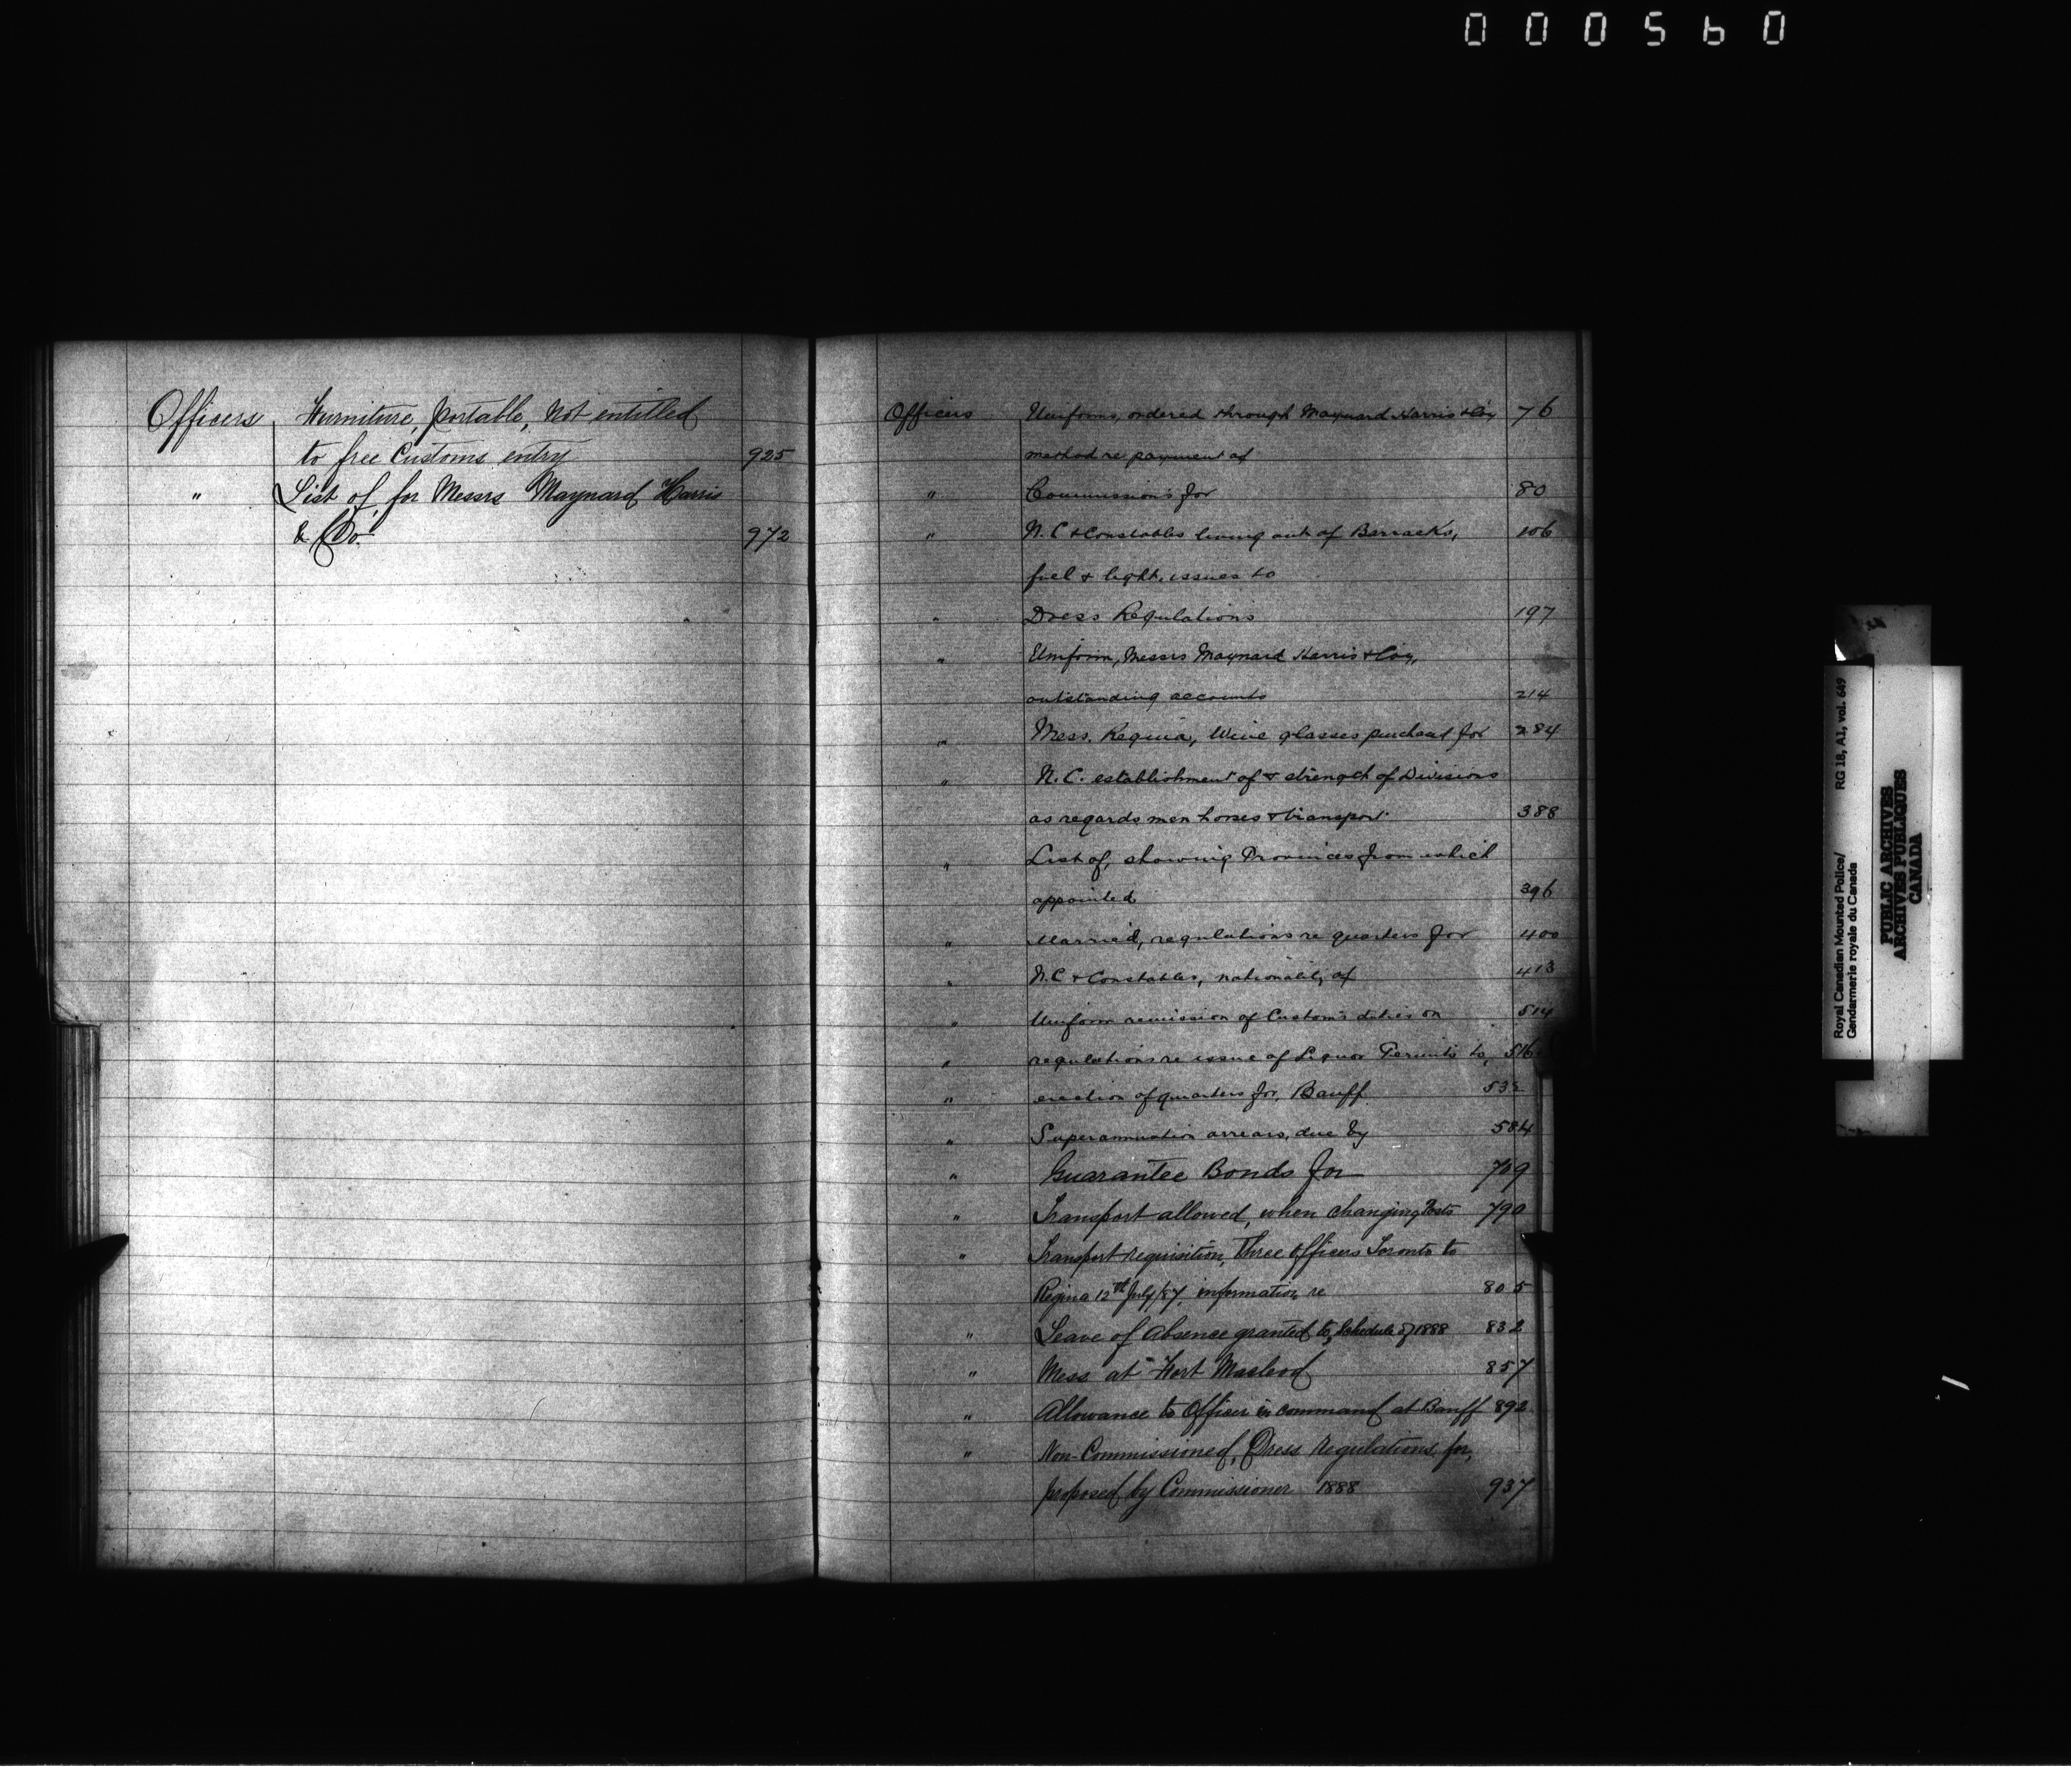 000560
Officers Furniture, portable, Not entitled
to free Customs entry 925
" List of, for Messrs Maynard Harris
& Co. 972
Officers Uniforms, ordered through Maynard Harris & Coy 76
method re payment of
" Commissions for 80
" N.C. & Constables living out of Barracks, 106
fuel & light, issues to
" Dress Regulations 197
" Uniform, Messrs Maynard Harris & Coy,
outstanding accounts 214
" Mess, Regina, Wine glasses purchased for 284
" N.C. establishment of & strength of Divisions
as regards men horses & transport 388
" List of, showing Provinces from which
appointed 396
" Married, regulations re quarters for 400
" N.C. & Constables, nationality of 413
" Uniform remission of Customs duties on 514
" regulations re issue of Liquor Permits to, 516
" erection of quarters for, Banff
" Superannuation arrears, due by 584
" Guarantee Bonds for 709
" Transport allowed, when changing Posts 790
" Transport requisition, three officers Toronto to
Regina 12th July/87, information re 805
" Leave of Absence granted to, Schedule of 1888 832
" Mess at Fort Macleod 857
" Allowance to Officer in command at Banff 892
" Non-Commissioned, Dress Regulations for,
proposed by Commissioner 1888 937
Royal Canadian Mounted Police/ RG 18, A1, vol. 649
Gendarmerie royale du Canada
PUBLIC ARCHIVES
ARCHIVES PUBLIQUES
CANADA